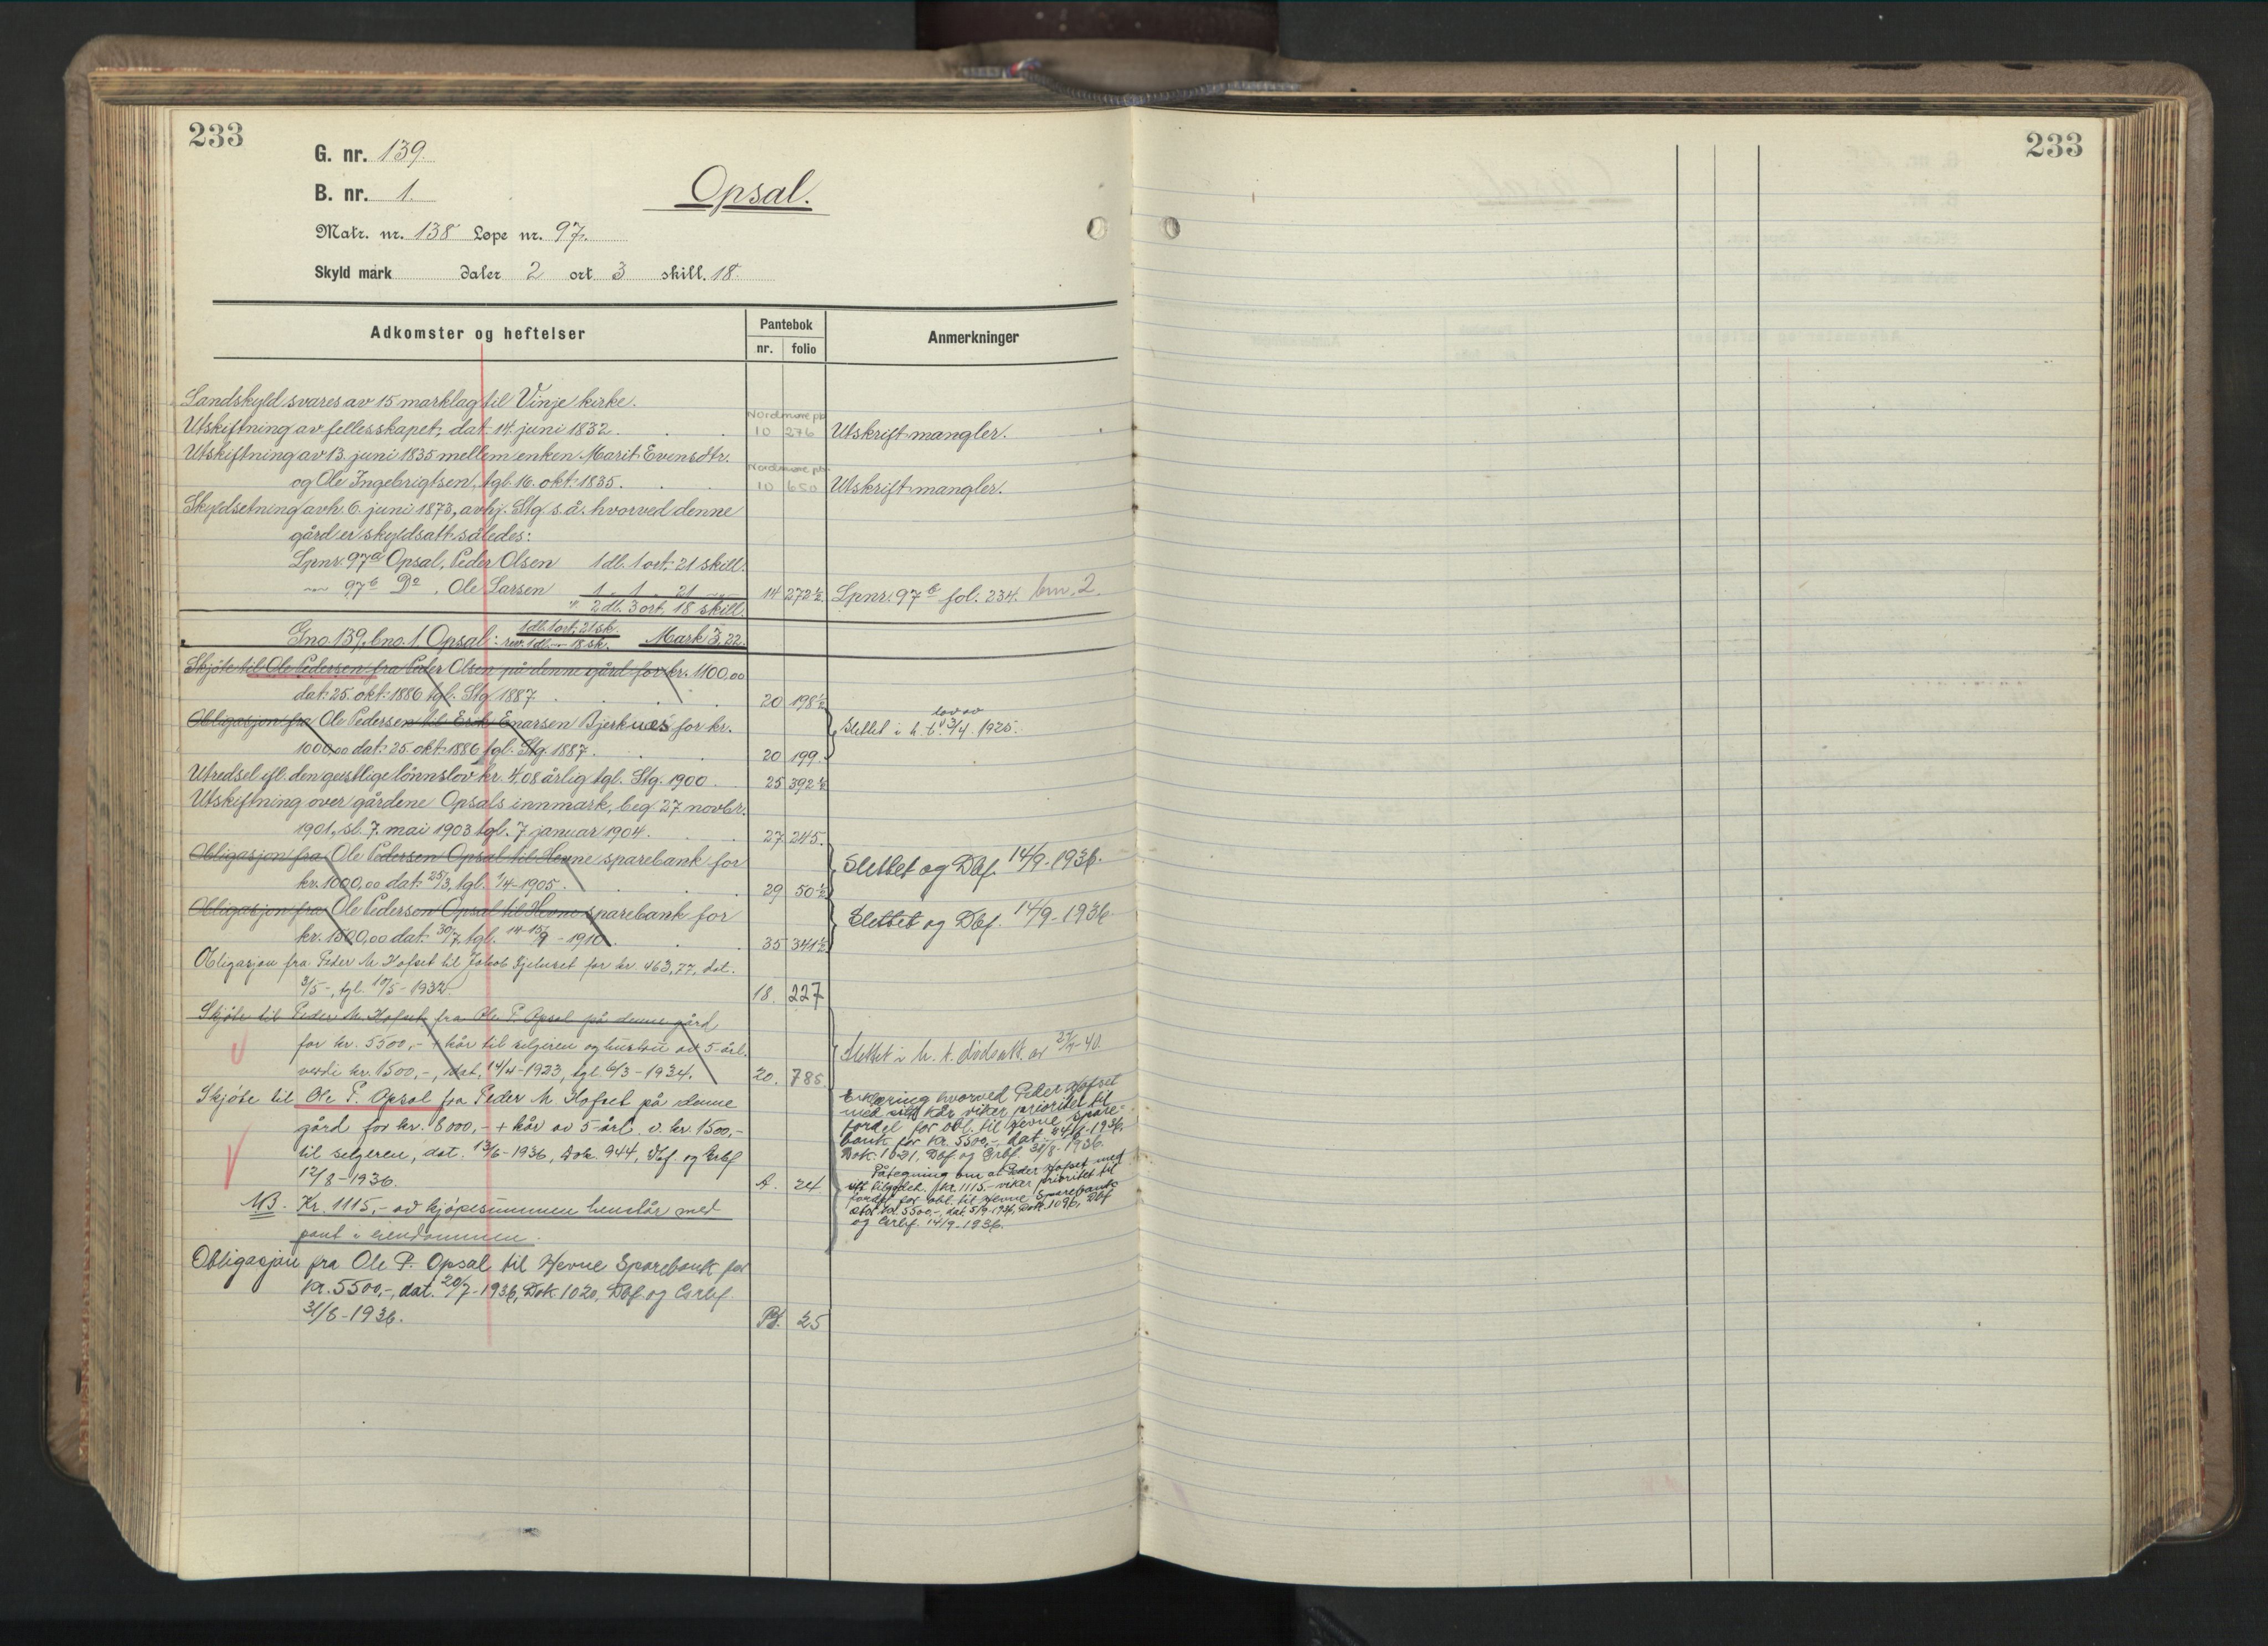 233
G. nr. 139.
B. nr. 1.
Opsal.
Matr. nr. 138 Løpe nr. 97.
Skyld mark daler 2 ort 3 skill. 18
Adkomster og heftelser
Pantebok
nr. folio
Anmerkninger
Landskyld svares av 15 marklag til Vinje kirke.
Utskiftning av fellesskapet, dat. 14. juni 1832. Nordmøre pb 10 276 Utskrift mangler.
Utskiftning av 13. juni 1835 mellem enken Marit Evensdtr.
og Ole Ingebrigtsen, tgl. 16. okt. 1835. Nordmøre pb 10 650 Utskrift mangler.
Skyldsetning avh. 6. juni 1873, avhj. Stg s. å. hvorved denne
gård er skyldsatt således:
Lpnr. 97a Opsal, Peder Olsen 1 dl. 1 ort. 21 skill.
" 97b Do. Ole Larsen 1 - 1 - 21 - 14 272½ Lpnr. 97b fol. 234. bnr. 2.
2 dl. 3 ort, 18 skill.
Gno. 139, bno. 1. Opsal: 1 dl. 1 ort. 21 sk. rev. 1 dl. - 18 sk. Mark 3,22.
Skjøte til Ole Pedersen fra Peder Olsen på denne gård for kr. 1100,00
dat. 25. okt. 1886 tgl. Stg 1887. 20 198½
Obligasjon fra Ole Pedersen til Erik Enarsen Bjerknæs for kr.
1000,00 dat. 25. okt. 1886 tgl. Stg. 1887. 20 199. Slettet i h. t. lov av 3/4 1925.
Utredsel efl. den geistlige lønnslov kr. 4,08 årlig tgl. Stg. 1900. 25 392½
Utskiftning over gårdene Opsals innmark, beg. 27 novbr.
1901, sl. 7. mai 1903 tgl. 7 januar 1904. 27 245.
Obligasjon fra Ole Pedersen Opsal til Hevne sparebank for
kr. 1000,00 dat. 25/3, tgl. 1/4-1905. 29 50½ Slettet og Dbf. 14/9-1936.
Obligasjon fra Ole Pedersen Opsal til Hevne sparebank for
kr. 1500,00 dat. 30/7, tgl. 14-15/9-1910. 35 341½ Slettet og Dbf. 14/9-1936
Obligasjon fra Peder M. Hofset til Jakob Gjelset for kr. 463,77, dat.
3/5-, tgl. 10/5-1932. 18. 227
Skjøte til Peder M. Hofset fra Ole P. Opsal på denne gård
for kr. 5500,- + kår til selgeren og hustru av 5-årl.
verdi kr. 1500,-, dat. 14/4-1923, tgl. 6/3-1934. 20. 785. Slettet i h. t. dødsatt. av 2/4-40.
Skjøte til Ole P. Opsal fra Peder M. Hofset på denne
gård for kr. 8000,- + kår av 5 årl. v. kr. 1500,-
til selgeren, dat. 13/6-1936, Dok. 944, Dbf. og Grbf
12/8-1936. A. 24
Erklæring hvorved Peder Hofset
med sitt kår viker prioritet til
fordel for obl. til Hevne Spare-
bank for kr. 5500,- dat. 24/8-1936.
Dok. 1021, Dbf. og Grbf. 31/8-1936.
Påtegning om at Peder Hofset med
sitt tilgodeh. kr. 1115,- viker prioritet til
fordel for obl. til Hevne Sparebank
stor kr. 5500,-, dat. 5/9-1936, Dok. 1096, Dbf
og Grbf. 14/9-1936.
NB. Kr. 1115,- av kjøpesummen henstår med
pant i eiendommen.
Obligasjon fra Ole P. Opsal til Hevne Sparebank for
kr. 5500,-, dat. 20/7-1936, Dok. 1020, Dbf og Grbf.
31/8-1936. Pb. 25
233